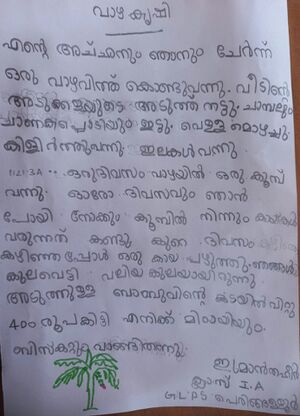 വാഴ കൃഷി
എന്റെ അച്ഛനും ഞാനും ചേർന്ന്
ഒരു വാഴവിത്ത് കൊണ്ടുവന്നു. വീടിന്റെ
അടുക്കളയുടെ അടുത്ത് നട്ടു. ചാമ്പലും
ചാണകപ്പൊടിയും ഇട്ടു. വെള്ള മൊഴച്ചു
കിളിർത്തുവന്നു. ഇലകൾ വന്നു.
ഒരുദിവസം വാഴയിൽ ഒരു കൂമ്പ്
വന്നു. ഓരോ ദിവസവും ഞാൻ
പോയി നോക്കും കൂമ്പിൽ നിന്നും കായ്കൾ
വരുന്നത് കണ്ടു കുറെ ദിവസം
കഴിഞ്ഞപ്പോൾ ഒരു കായ പഴുത്തു. ഞങ്ങൾ
കുലവെട്ടി വലിയ കുലയായിരുന്നു.
അടുത്തുള്ള ബാബുവിന്റെ കടയിൽ വിറ്റു
400 രൂപകിട്ടി എനിക്ക് മിഠായിയും
ബിസ്കറ്റും വാങ്ങിത്തന്നു.
ഇമ്രാൻതഹീർ
ക്ലാസ് I.A
GLPS പെരിങ്ങള്ളൂർ